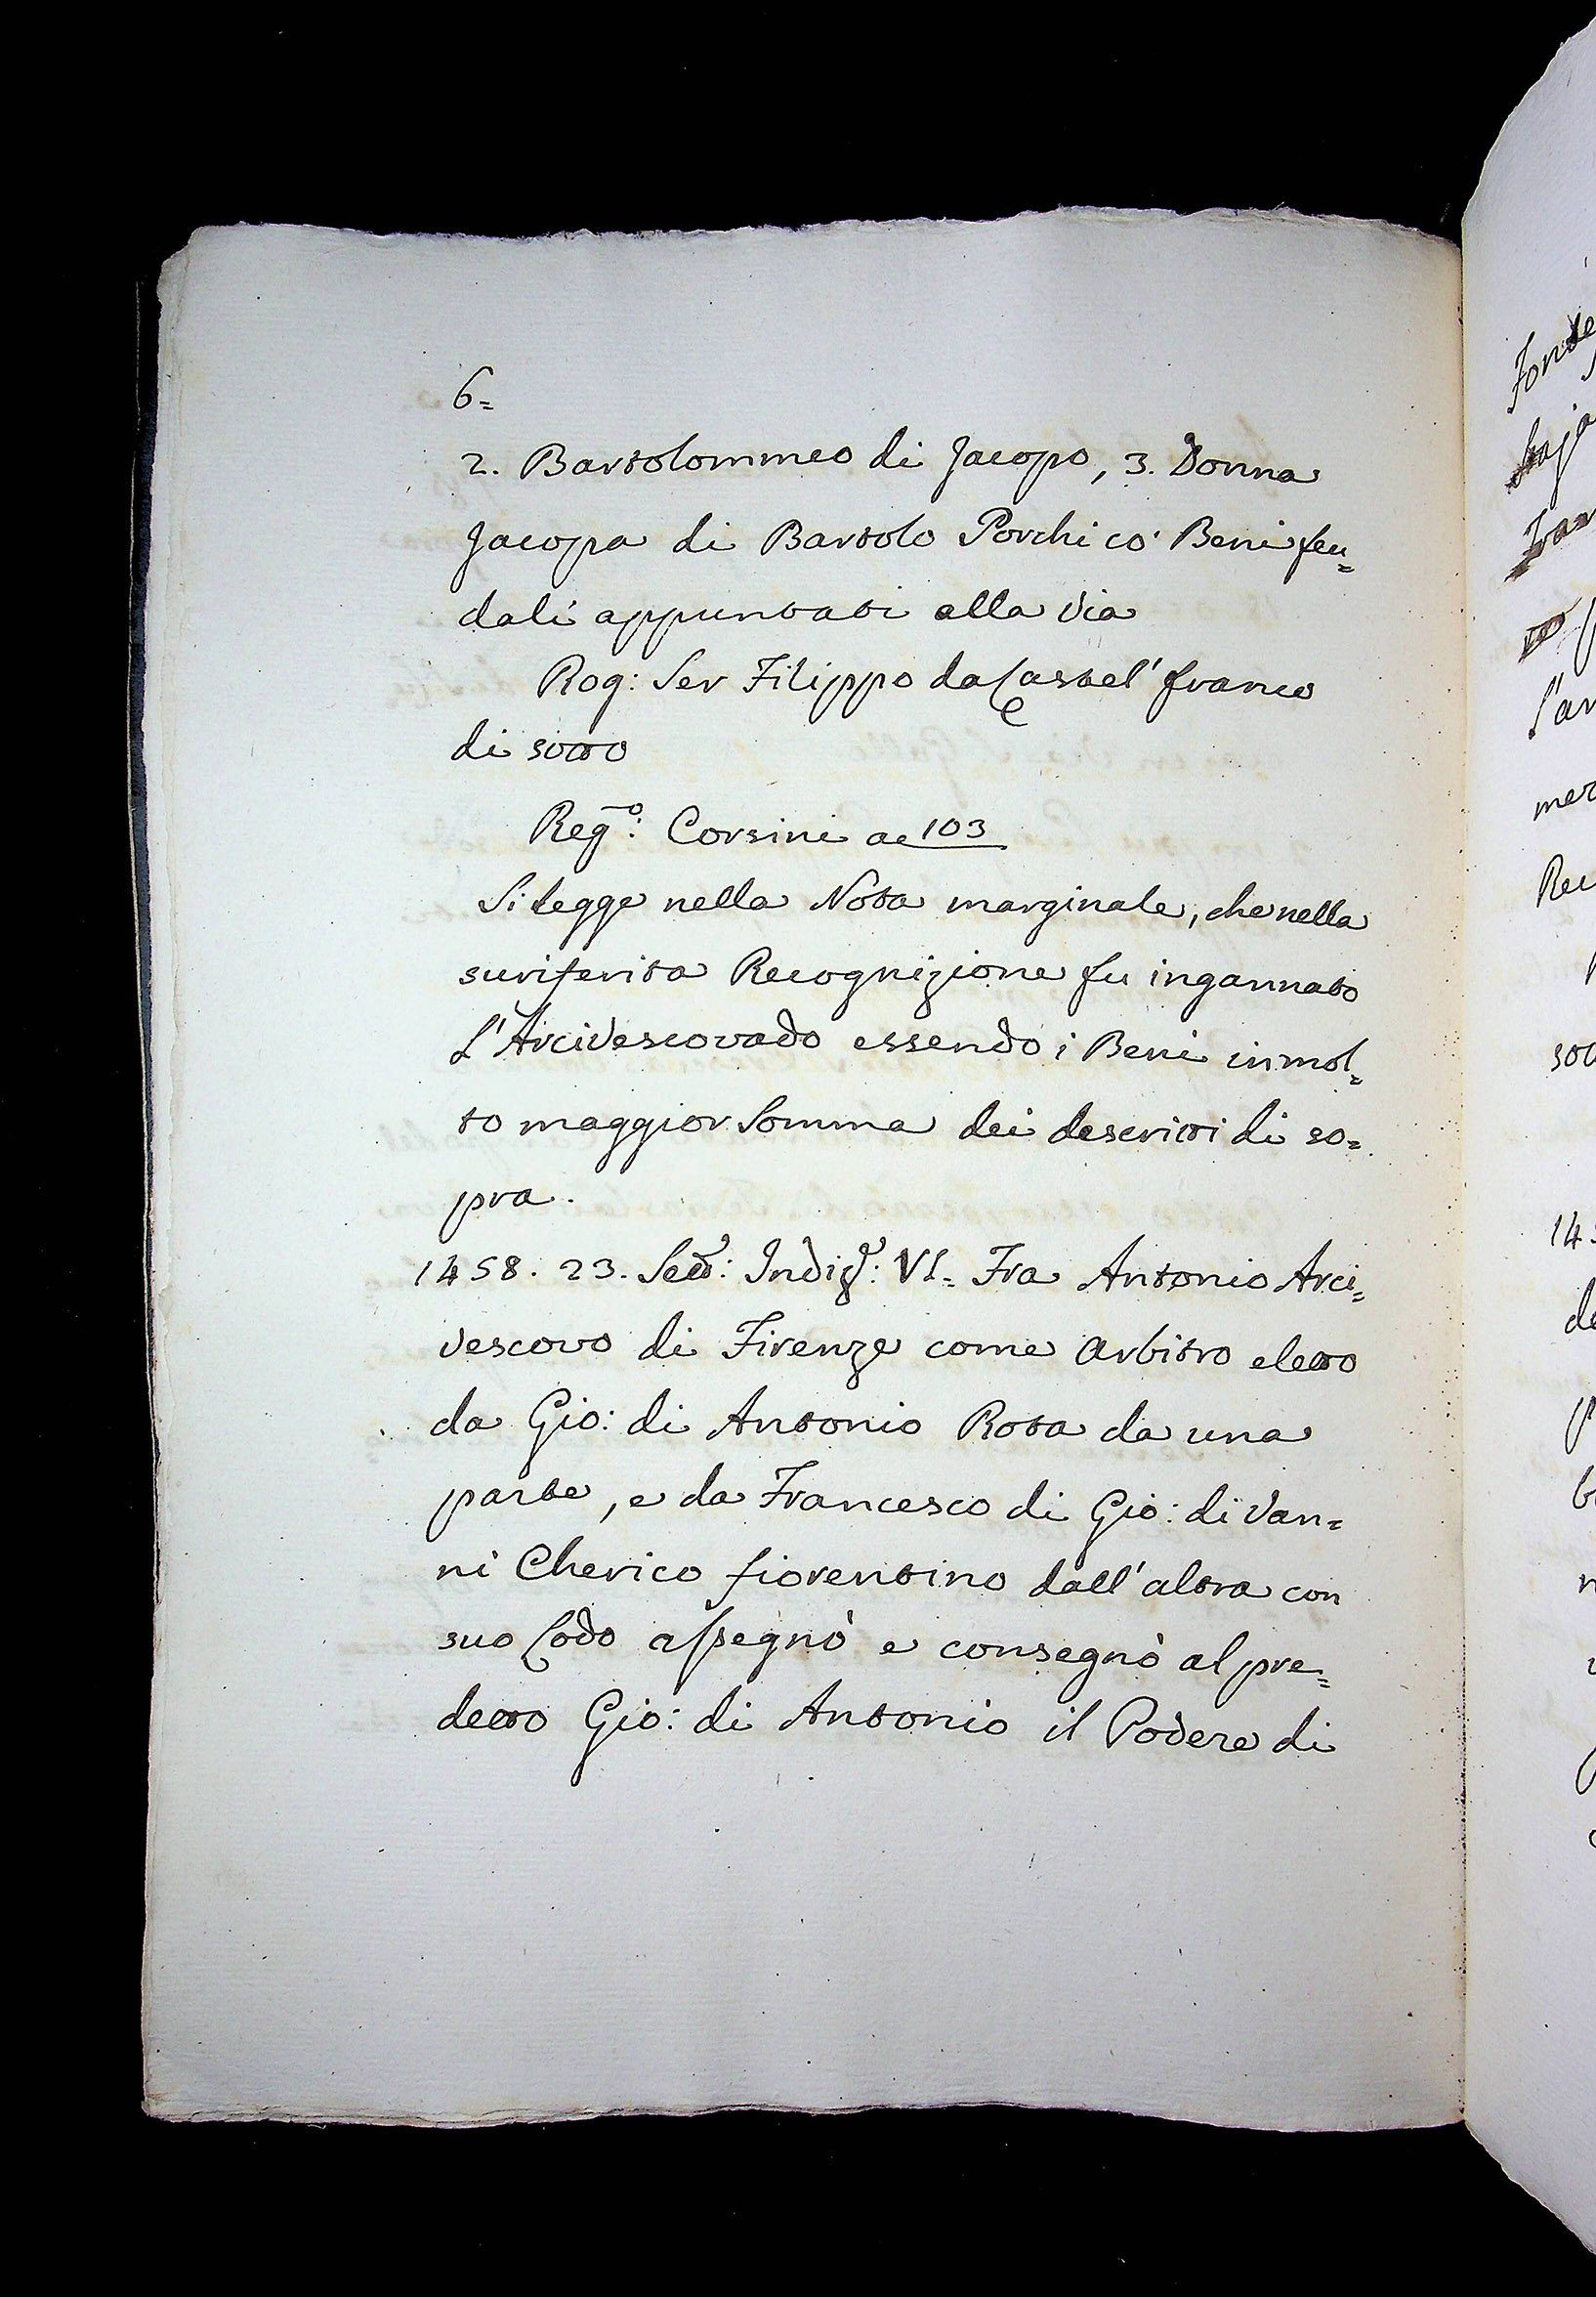 6=
2. Bartolommeo di Jacopo, 3. Donna
Jacopa di Bartolo Porchi co' Beni feu=
dali appuntati alla via
Rog: Ser Filippo da Castel' franco
di sotto
Reg.º: Corsini a c 103
Si legge nella Nota marginale, che nella
suriferita Recognizione fu ingannato
l'Arcivescovado essendo i Beni in mol=
to maggior Somma dei descritti di so=
pra.
1458. 23. Sett: Indiz: VI. Fra Antonio Arci=
vescovo di Firenze come arbitro eletto
da Gio: di Antonio Rota da una
parte, e da Francesco di Gio: di Van=
ni Cherico fiorentino dall'altra con
suo Lodo assegnò e consegnò al pre=
detto Gio: di Antonio il Podere di